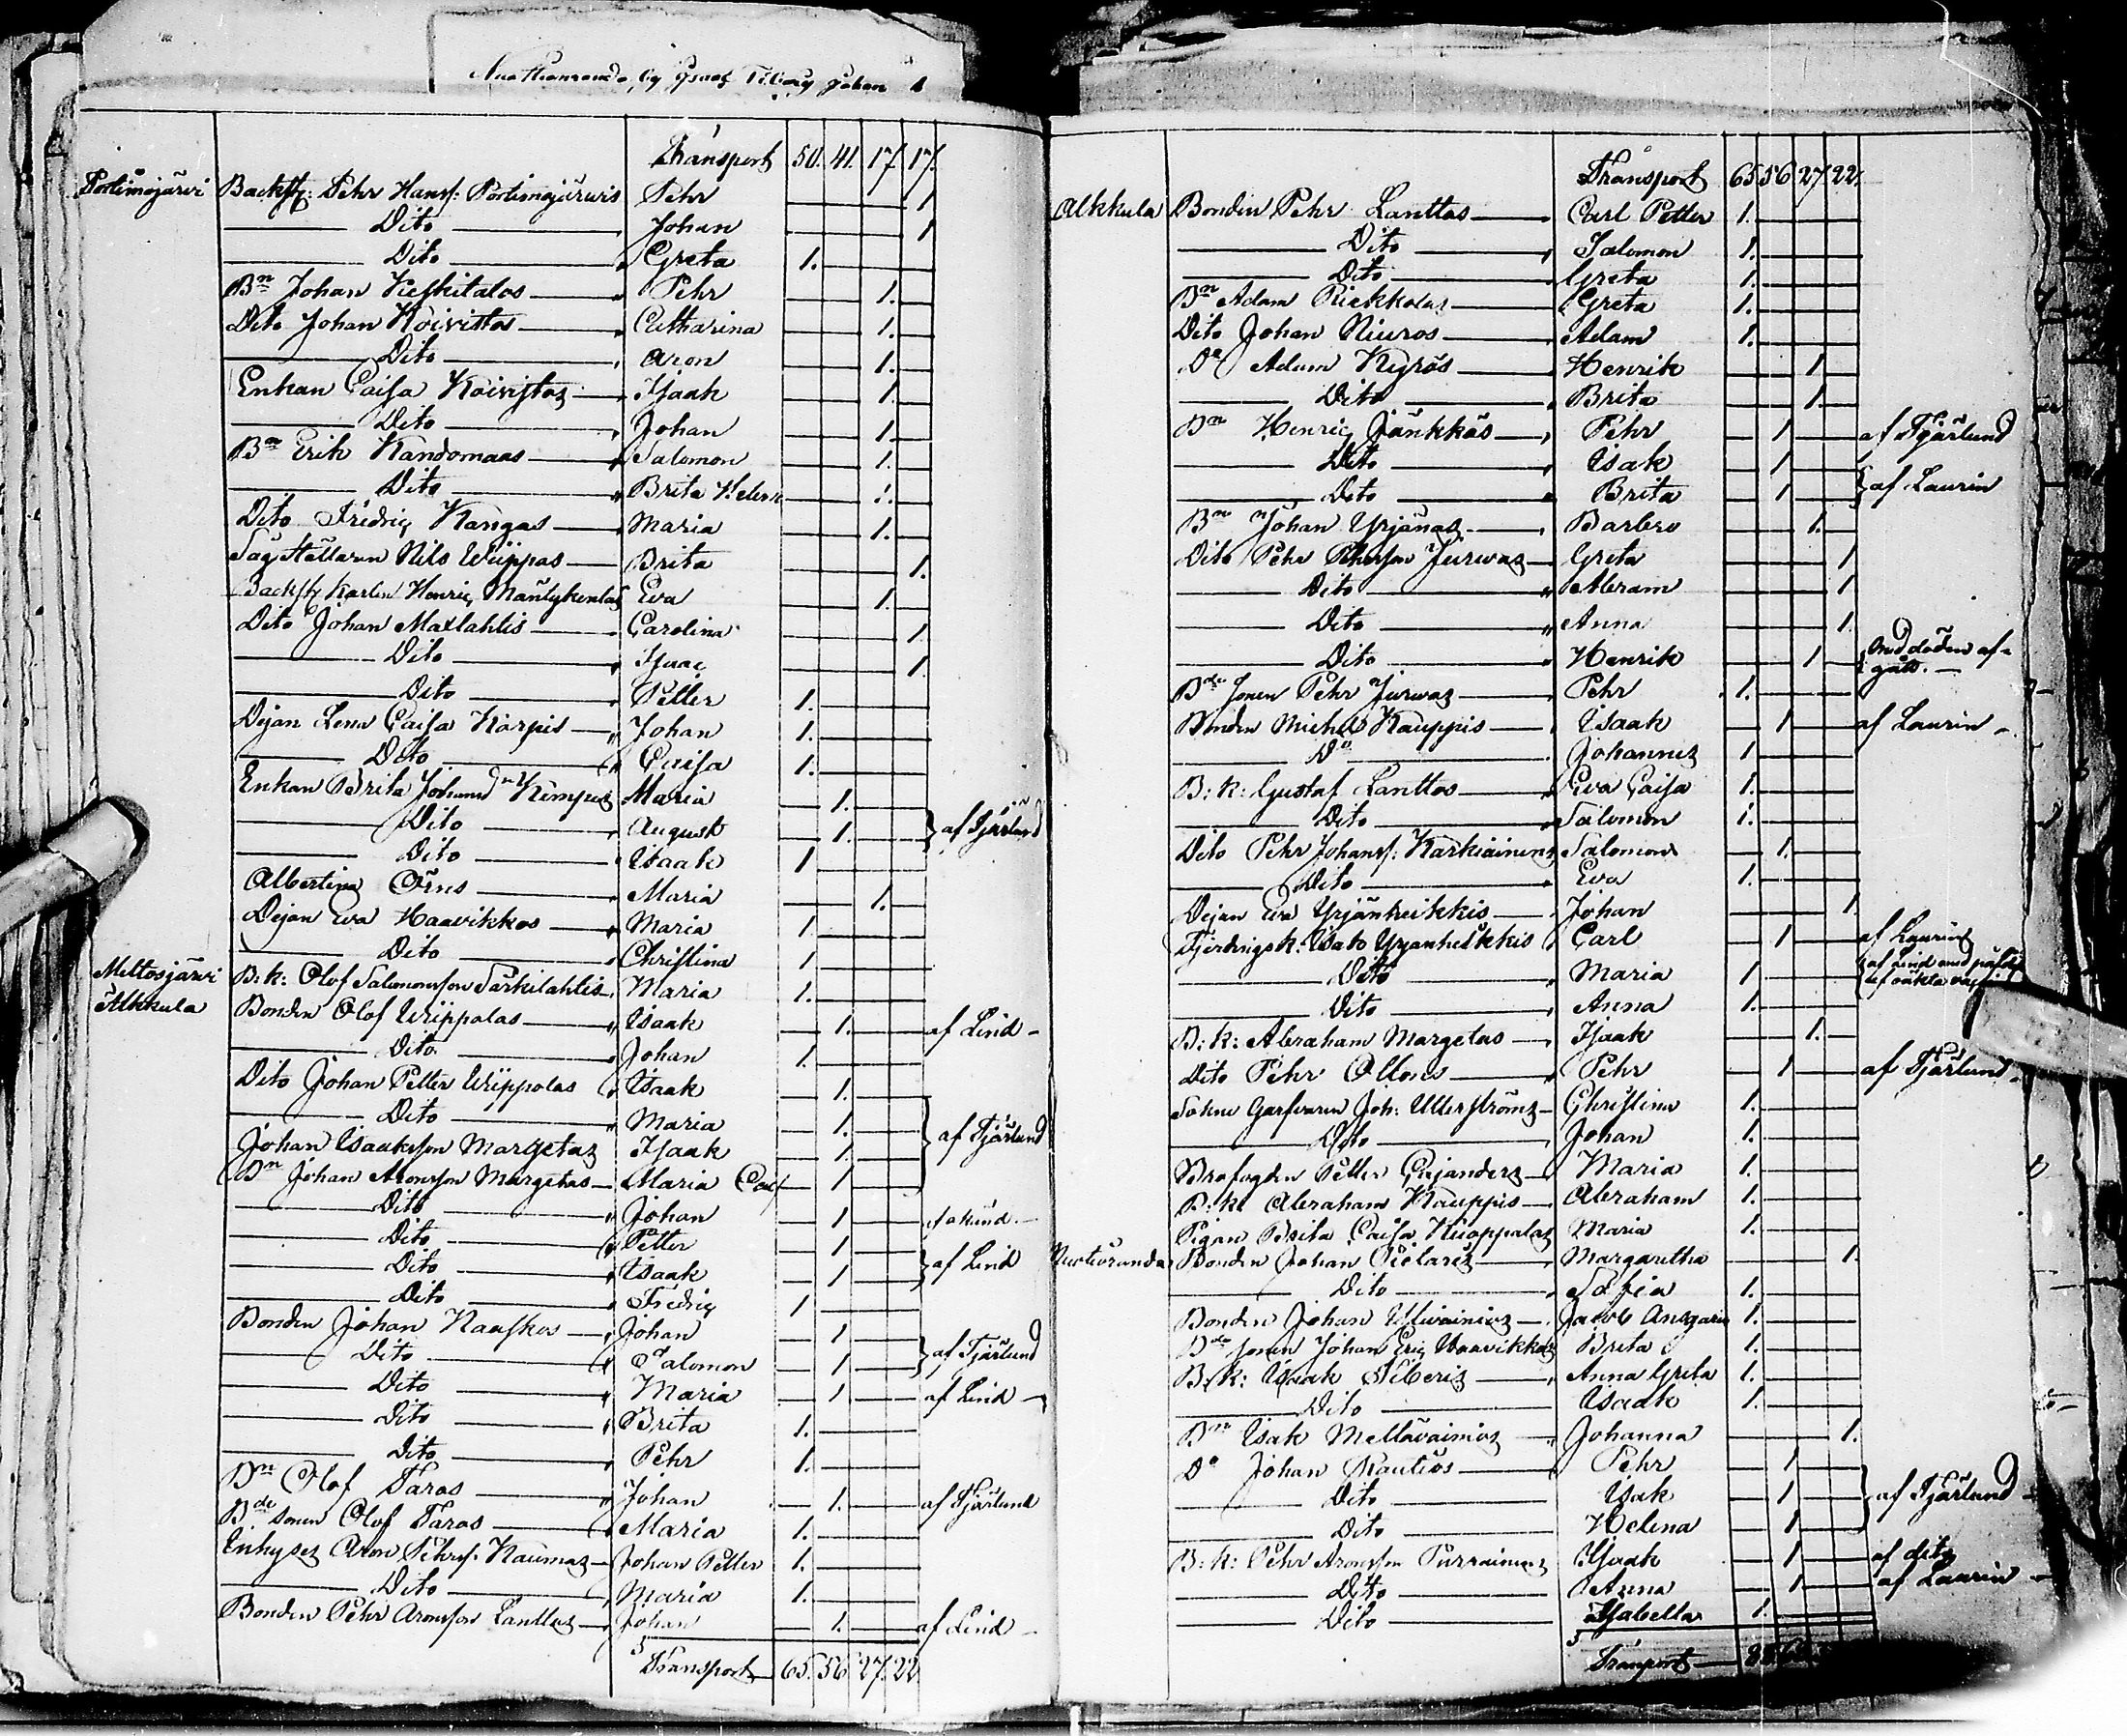 by Isaac Johan
Transport 50. 41. 17. 17.
Portimojärvi Backstg: Pehr Hansf: Portimojärwis Pehr 1
Dito Johan 1
Dito Greta 1.
Bn Johan Keskitalos Pehr 1.
Dito Johan Koivistos Catharina 1.
Dito Aron 1.
Enkan Caisa Koivistoz Isaak 1
Dito Johan 1.
Bn Erik Kandomaas Salomon 1.
Dito Brita Helena 1.
Dito Fredrig Kangas Maria 1.
Sågställaren Nils Wiippas Brita 1.
Backstg Karlen Henric Eva 1.
Dito Johan Maxlahtis Carolina 1.
Dito Isaac 1.
Dito Petter 1.
Dejan Lena Caisa Karpis Johan 1.
Dito Caisa 1.
Enkan Brita Kempez Maria 1.
Dito August 1. } af Tjärlund
Dito Isaak 1
Albertina Örns Maria 1.
Dejan Eva Haavikkos Maria 1.
Dito Christina 1
Meltosjärvi B: k: Olof Salomonsson Särkilahtis Maria 1.
Alkkula Bonden Olof Wiippolas Isaak 1. af Lind
Dito Johan 1.
Dito Johan Petter Wiippolas Isaak 1.
Dito Maria 1.
Johan Isaaksson Margetaz Isaak 1. } af Tjärlund
Bn Johan Aronsson Margetas Maria Cais 1
Dito Johan 1
Dito Petter 1
Dito Isaak 1 } af Lind
Dito Fredrig 1
Bonden Johan Kauskos Johan 1
Dito Salomon 1. } af Tjärlund
Dito Maria 1 af Lind
Dito Brita 1.
Dito Pehr 1.
Bn Olof Taras Johan 1. af Tjärlund
Bde sonen Olof Taras Maria 1.
Enhysez Aron Pehrs: Kaumaz Johan Petter 1.
Dito Maria 1.
Bonden Pehr Aronsson Lanttoz Johan 1. af Lind
Transport 65. 56. 27. 22.
Transport 65 56 27. 22.
Alkkula Bonden Pehr Lanttos Carl Petter 1.
Dito Salomon 1.
Dito Greta 1.
Bn Adam Riekkolas Greta 1.
Dito Johan Niuros Adam 1.
Do Adam Kyrös Henrik 1
Dito Brita 1.
Bn Henric Jänkkäs Pehr 1 af Tjärlund
Dito Isak 1
Dito Brita 1 } af Laurin
Bn Johan Yrjänäs Barbro 1.
Dito Pehr Pehrsson Jurvaz Greta 1
Dito Abram 1
Dito Anna 1.
Dito Henrik 1 med döden af-
gått.
Bde sonen Pehr Jurvaz Pehr 1.
Bonden Michel Kauppis Isaak 1 af Laurin
Do Johannes 1
B: k: Gustaf Lanttos Eva Caisa 1.
Dito Salomon 1.
Dito Pehr Johansf: Karkiainens Salomon 1.
Dito Eva 1.
Dejan Eva Yrjänheikkis Johan 1
Fjerdingsk: Isak Yrjanheikkis Carl 1 af Laurin
Dito Maria 1
Dito Anna 1.
B: k: Abraham Margetas Isaak 1.
Dito Pehr Ollons Pehr 1 af Tjärlund
Garfvaren Joh: Ullerströmz Christina 1.
Dito Johan 1.
Brofogden Petter Cajanderz Maria 1.
B: k: Abraham Kauppis Abraham 1.
Pigan Brita Caisa Kuoppalaz Maria 1.
Nuotioranda Bonden Johan Pielariz Margaretha 1.
Dito Sofia 1.
Bonden Johan Ylivainioz Jacob Ansgarius 1.
Bde sonen Johan Eric Haavikkoz Brita 1.
B: k: Isaak Tiberiz Anna Greta 1.
Dito Isaak 1.
Bn Isak Mellavainioz Johanna 1.
Do Johan Rautios Pehr 1
Dito Isak 1 } af Tjärlund
Dito Helena 1
B: k: Pehr Aronsson Purrainenz Isaak 1 af dito
Dito Anna 1 af Laurin
Dito Isabella 1.
Transport